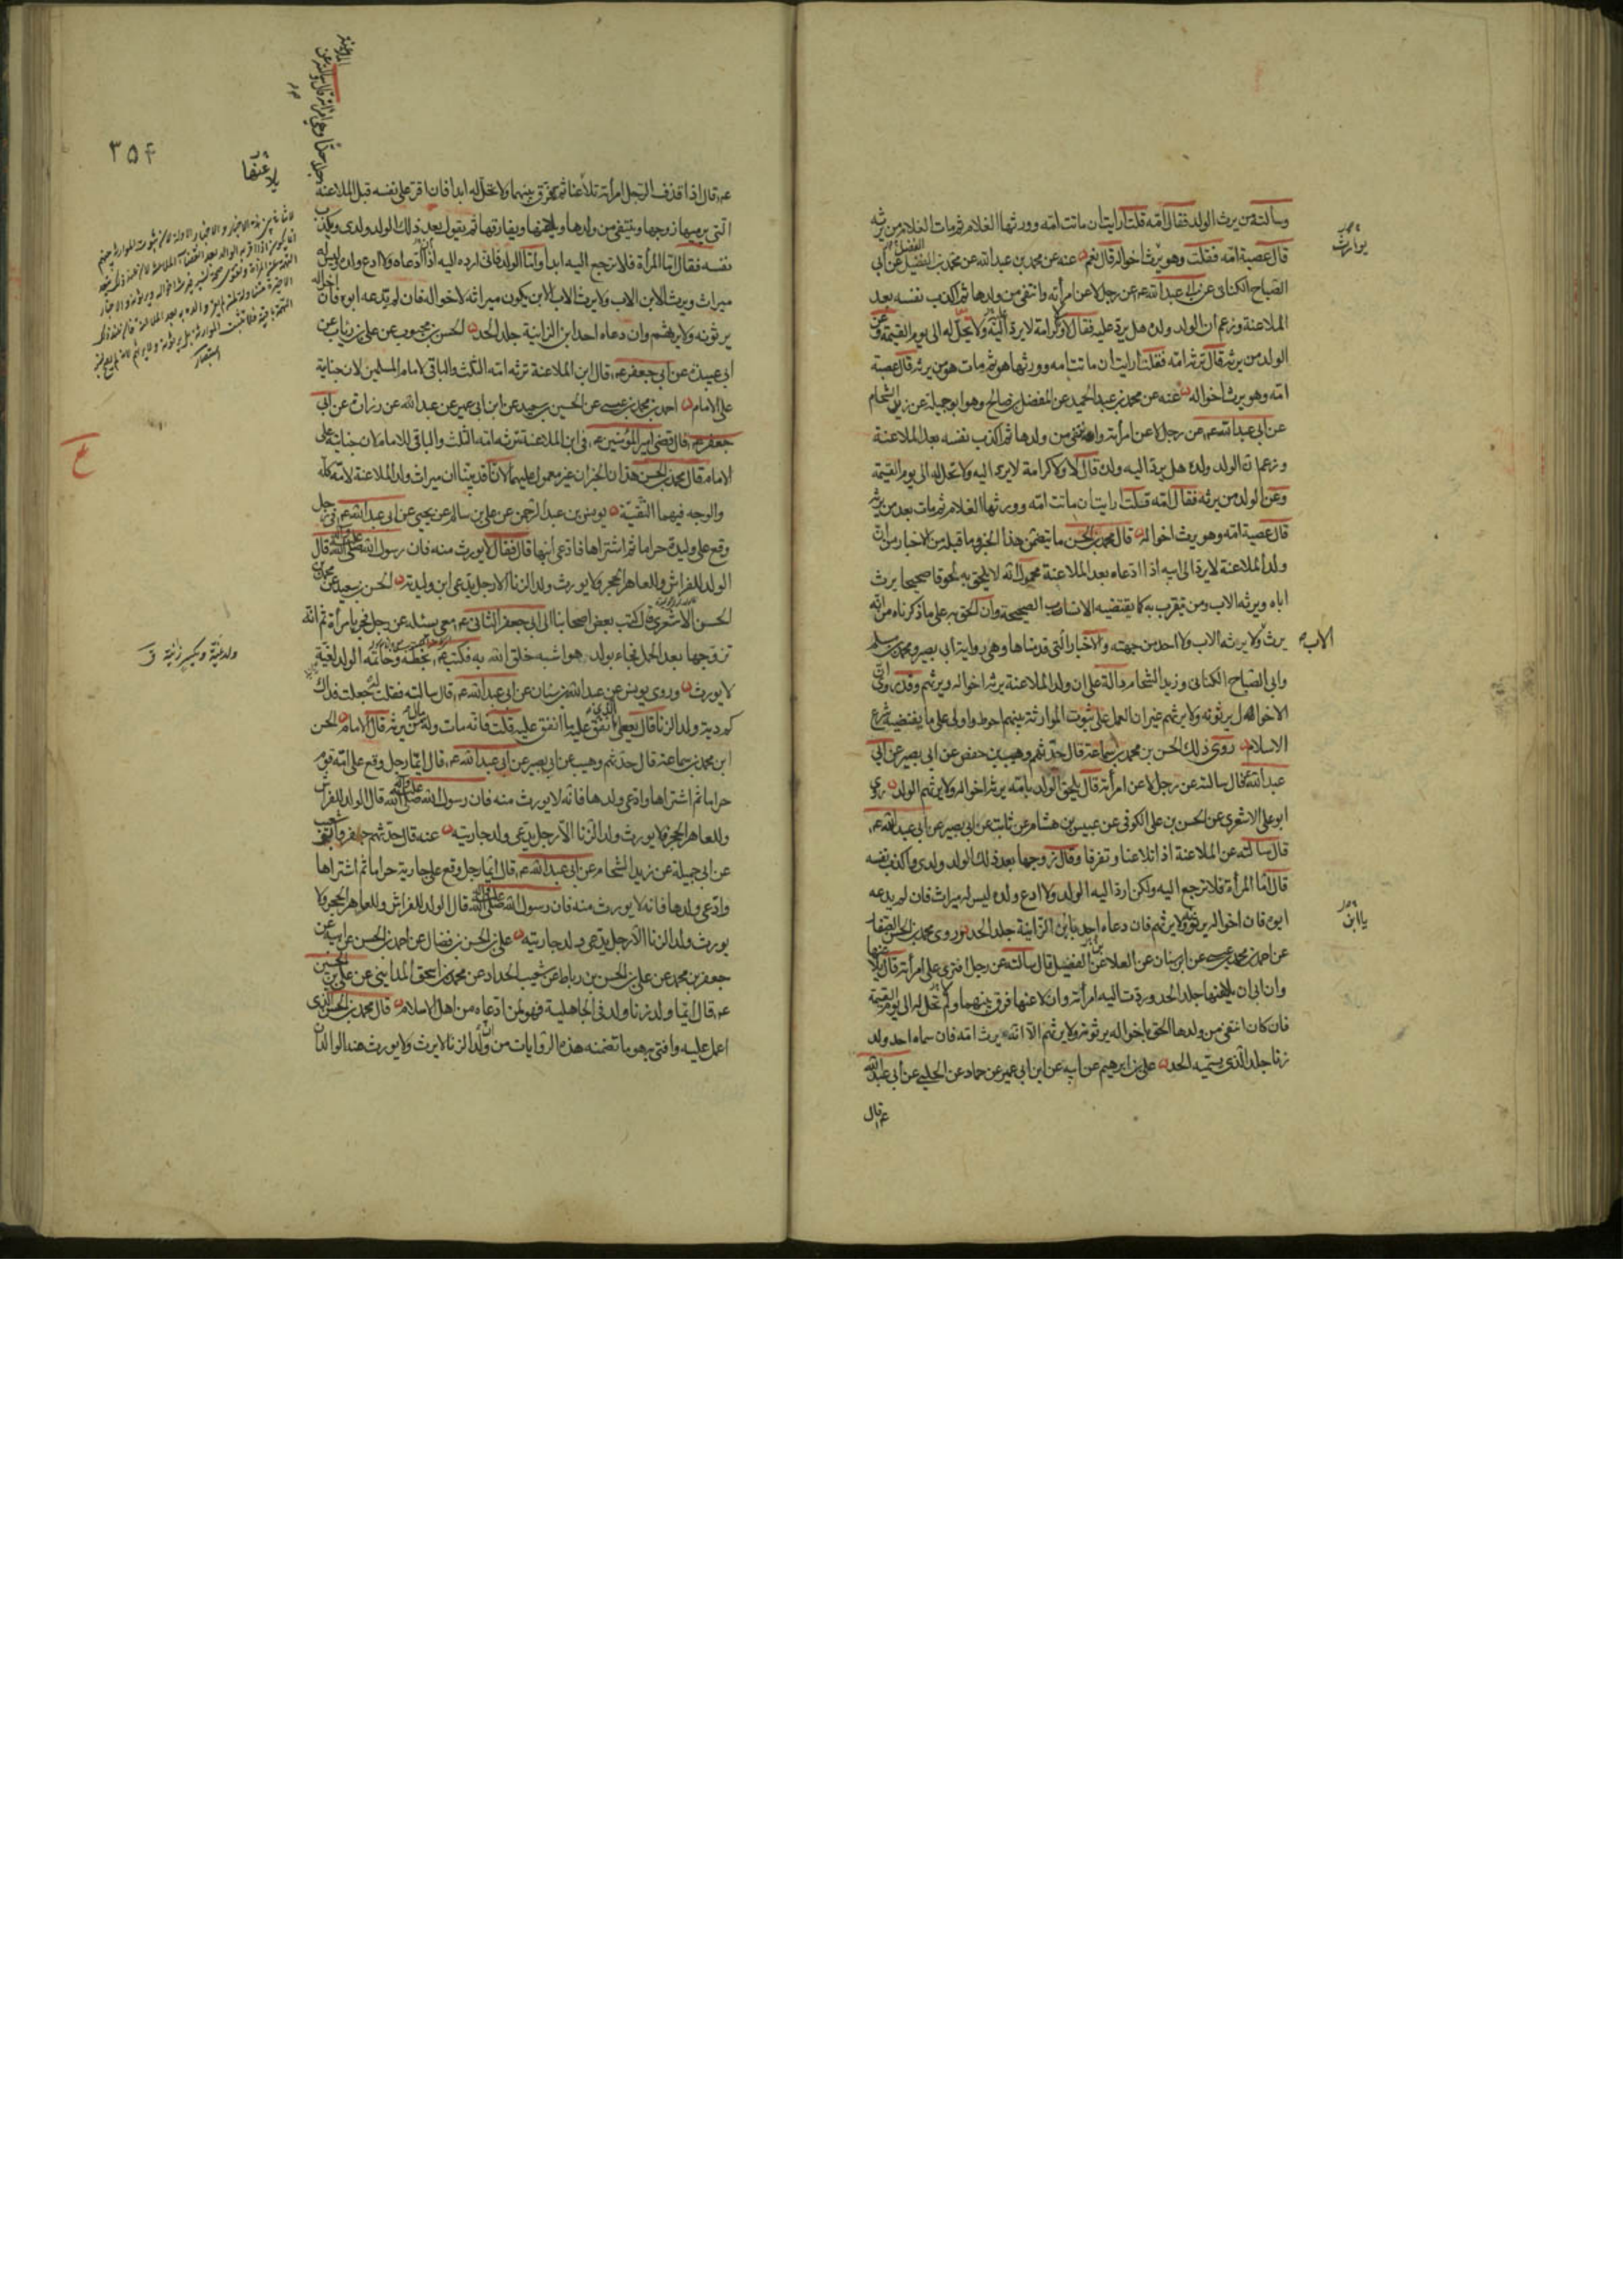 وسألته من يرث الولد فقال امّه قلت ارايت ان ماتت امّه وورثها الغلام ثم مات الغلام من يرثه
قال عصبة امّه فقلت وهو يرث اخواله قال نعم عنه عن محمد بن عبدالله عن محمد بن الفضيل عن أبي
الصّباح الكناني عن ابي عبدالله ع عن رجل لاعن امرأته وانتفى من ولدها ثم اكذب نفسه بعد
الملاعنة وزعم ان الولد ولده هل يرد عليه فقال لا ولا كرامة لا يرد اليه ولا تحلّ له الى يوم القيمة وعن
الولد من يرثه قال ترثه امّه فقلت ارايت ان ماتت امه وورثها هو ثم مات هو من يرثه قال عصبة
امّه وهو يرث اخواله عنه عن محمد بن عبد الحميد عن المفضل بن صالح وهو ابو جميلة عن زيد الشحام
عن ابي عبدالله ع عن رجل لاعن امرأته وانتفى من ولدها ثم اكذب نفسه بعد الملاعنة
وزعم ان الولد ولده هل يرد اليه ولده قال لا ولا كرامة لا يرد اليه ولا تحل له الى يوم القيمة
وعن الولد من يرثه فقال امّه قلت ارايت ان ماتت امّه وورثها الغلام ثم مات بعد من يرثه
قال عصبة امّه وهو يرث اخواله قال محمد بن الحسن ما يتضمن هذا الخبر وما قبله من الاخبار من ان
ولد الملاعنة لا يرد الى ابيه اذا ادّعاه بعد الملاعنة محمول انّه لا يلحق به لحوقا صحيحا يرث
اباه ويرثه الاب ومن يتقرب به كما يقتضيه الانساب الصحيحة وان الحق به على ما ذكرناه من انّه
يرث ولا يرثه الاب ولا احد من جهته والاخبار التي قدمناها وهي رواية أبي بصير ومحمد بن مسلم
وابي الصّباح الكناني وزيد الشحام دالّة على ان ولد الملاعنة يرث اخواله ويرثهم وقد روى ان
الاخوال يرثونه ولا يرثهم غير ان العمل على ثبوت الموارثة بينهم احوط واولى على ما يقتضيه شرع
الاسلام روى ذلك الحسن بن محمد بن سماعة قال حدّثهم وهيب بن حفص عن ابي بصير عن ابي
عبدالله ع قال سالته عن رجل لاعن امرأته قال يلحق الولد بامّه يرثه اخواله ولا يرثهم الولد روى
ابو علي الاشعري عن الحسن بن علي الكوفي عن عبيس بن هشام عن ثابت عن ابي بصير عن ابي عبدالله ع
قال سالته عن الملاعنة اذا تلاعنا وتفرقا وقال زوجها بعد ذلك الولد ولدي واكذب نفسه
قال امّا المرأة فلا ترجع اليه ولكن ارد اليه الولد ولا ادع ولده ليس له ميراث فان لم يدعه
ابوه فان اخواله يرثونه ولا يرثهم فان دعاه احد بابن الزانية جلد الحد وروى محمد بن الحسن الصفار
عن احمد بن محمد بن عيسى عن ابن سنان عن العلا عن الفضيل قال سالته عن رجل افترى على امرأته قال يلاعنها
وان ابى ان يلاعنها جلد الحد وردت اليه امرأته وان لاعنها فرق بينهما ولم تحل له الى يوم القيمة
فان كان انتفى من ولدها الحق باخواله يرثونه ولا يرثهم الا انّه يرث امّه فان سماه احد ولد
زنا جلد الّذي يسمّيه الحد علي بن ابرهيم عن ابيه عن ابن ابي عمير عن حماد عن الحلبي عن أبي عبدالله
ع قال
يوارث
الاب
يا ابن
٣٥٤
يلاعنها
ع قال اذا قذف الرّجل امرأته تلاعنا ثم يفرق بينهما ولا تحلّ له ابدا فان اقر على نفسه قبل الملاعنة
التي يرميها زوجها وينتفي من ولدها ويلاعنها ويفارقها ثم يقول بعد ذلك الولد ولدي ويكذب
نفسه فقال امّا المرأة فلا ترجع اليه ابدا وامّا الولد فاني ارده اليه اذا ادّعاه ولا ادع ولده ليس له
ميراث ويرث الابن الاب ولا يرث الاب الابن يكون ميراثه لاخواله فان لم يدّعه ابوه فان اخواله
يرثونه ولا يرثهم وان دعاه احد ابن الزانية جلد الحد الحسن بن محبوب عن علي بن رئاب عن
ابي عبيدة عن ابي جعفر ع قال ابن الملاعنة ترثه امّه الثلث والباقي لامام المسلمين لان جنايته
على الامام احمد بن محمد بن عيسى عن الحسين بن سعيد عن ابن ابي عمير عن عبدالله عن زرارة عن ابي
جعفر ع قال قضى امير المؤمنين ع في ابن الملاعنة ترثه امّه الثلث والباقي للامام لان جنايته على
الامام قال محمد بن الحسن هذان الخبران غير معمول عليهما لانّا قد بيّنّا ان ميراث ولد الملاعنة لامّه كلّه
والوجه فيهما التّقيّة يونس بن عبد الرّحمن عن علي بن سالم عن يحيى عن ابي عبدالله ع في رجل
وقع على وليدة حراما ثم اشتراها فادّعى ابنها قال فقال لا يورث منه فان رسول الله صلى الله عليه وآله قال
الولد للفراش وللعاهر الحجر ولا يورث ولد الزنا الا رجل يدّعي ابن وليدته الحسن بن سعيد عن محمد بن
الحسن الاشعري قال كتب بعض اصحابنا الى ابي جعفر الثاني ع معي يسئله عن رجل فجر بامرأة ثم انّه
تزوجها بعد الحمل فجاءت بولد هو اشبه خلق الله به فكتب ع بخطّه وخاتمه الولد لغيّة
لا يورث وروى يونس عن عبدالله بن سنان عن ابي عبدالله ع قال سالته فقلت له جعلت فداك
كم دية ولد الزنا قال يعطى الّذي انفق عليه ما انفق عليه قلت فانّه مات وله مال من يرثه قال الامام الحسن
ابن محمد بن سماعة قال حدّثهم وهيب عن ابي بصير عن ابي عبدالله ع قال ايّما رجل وقع على امّة قوم
حراما ثم اشتراها وادّعى ولدها فانّه لا يورث منه فان رسول الله صلى الله عليه وآله قال الولد للفراش
وللعاهر الحجر ولا يورث ولد الزّنا الّا رجل يدّعي ولد جاريته عنه قال حدّثهم جعفر
عن ابي جميلة عن زيد الشحام عن ابي عبدالله ع قال ايّما رجل وقع على جارية حراما ثم اشتراها
وادّعى ولدها فانه لا يورث منه فان رسول الله صلى الله عليه وآله قال الولد للفراش وللعاهر الحجر ولا
يورث ولد الزنا الا رجل يدّعي ولد جاريته علي بن الحسن بن فضال عن احمد بن الحسن عن ابيه عن
جعفر بن محمد عن علي بن الحسن بن رباط عن شعيب الحداد عن محمد بن اسحق المدايني عن علي بن الحسين
ع قال ايّما ولد زنا ولد في الجاهلية فهو لمن ادّعاه من اهل الاسلام قال محمد بن الحسن الذي
اعمل عليه وافتى به هو ما تضمنه هذه الرّوايات من ان ولد الزنا لا يرث ولا يورث